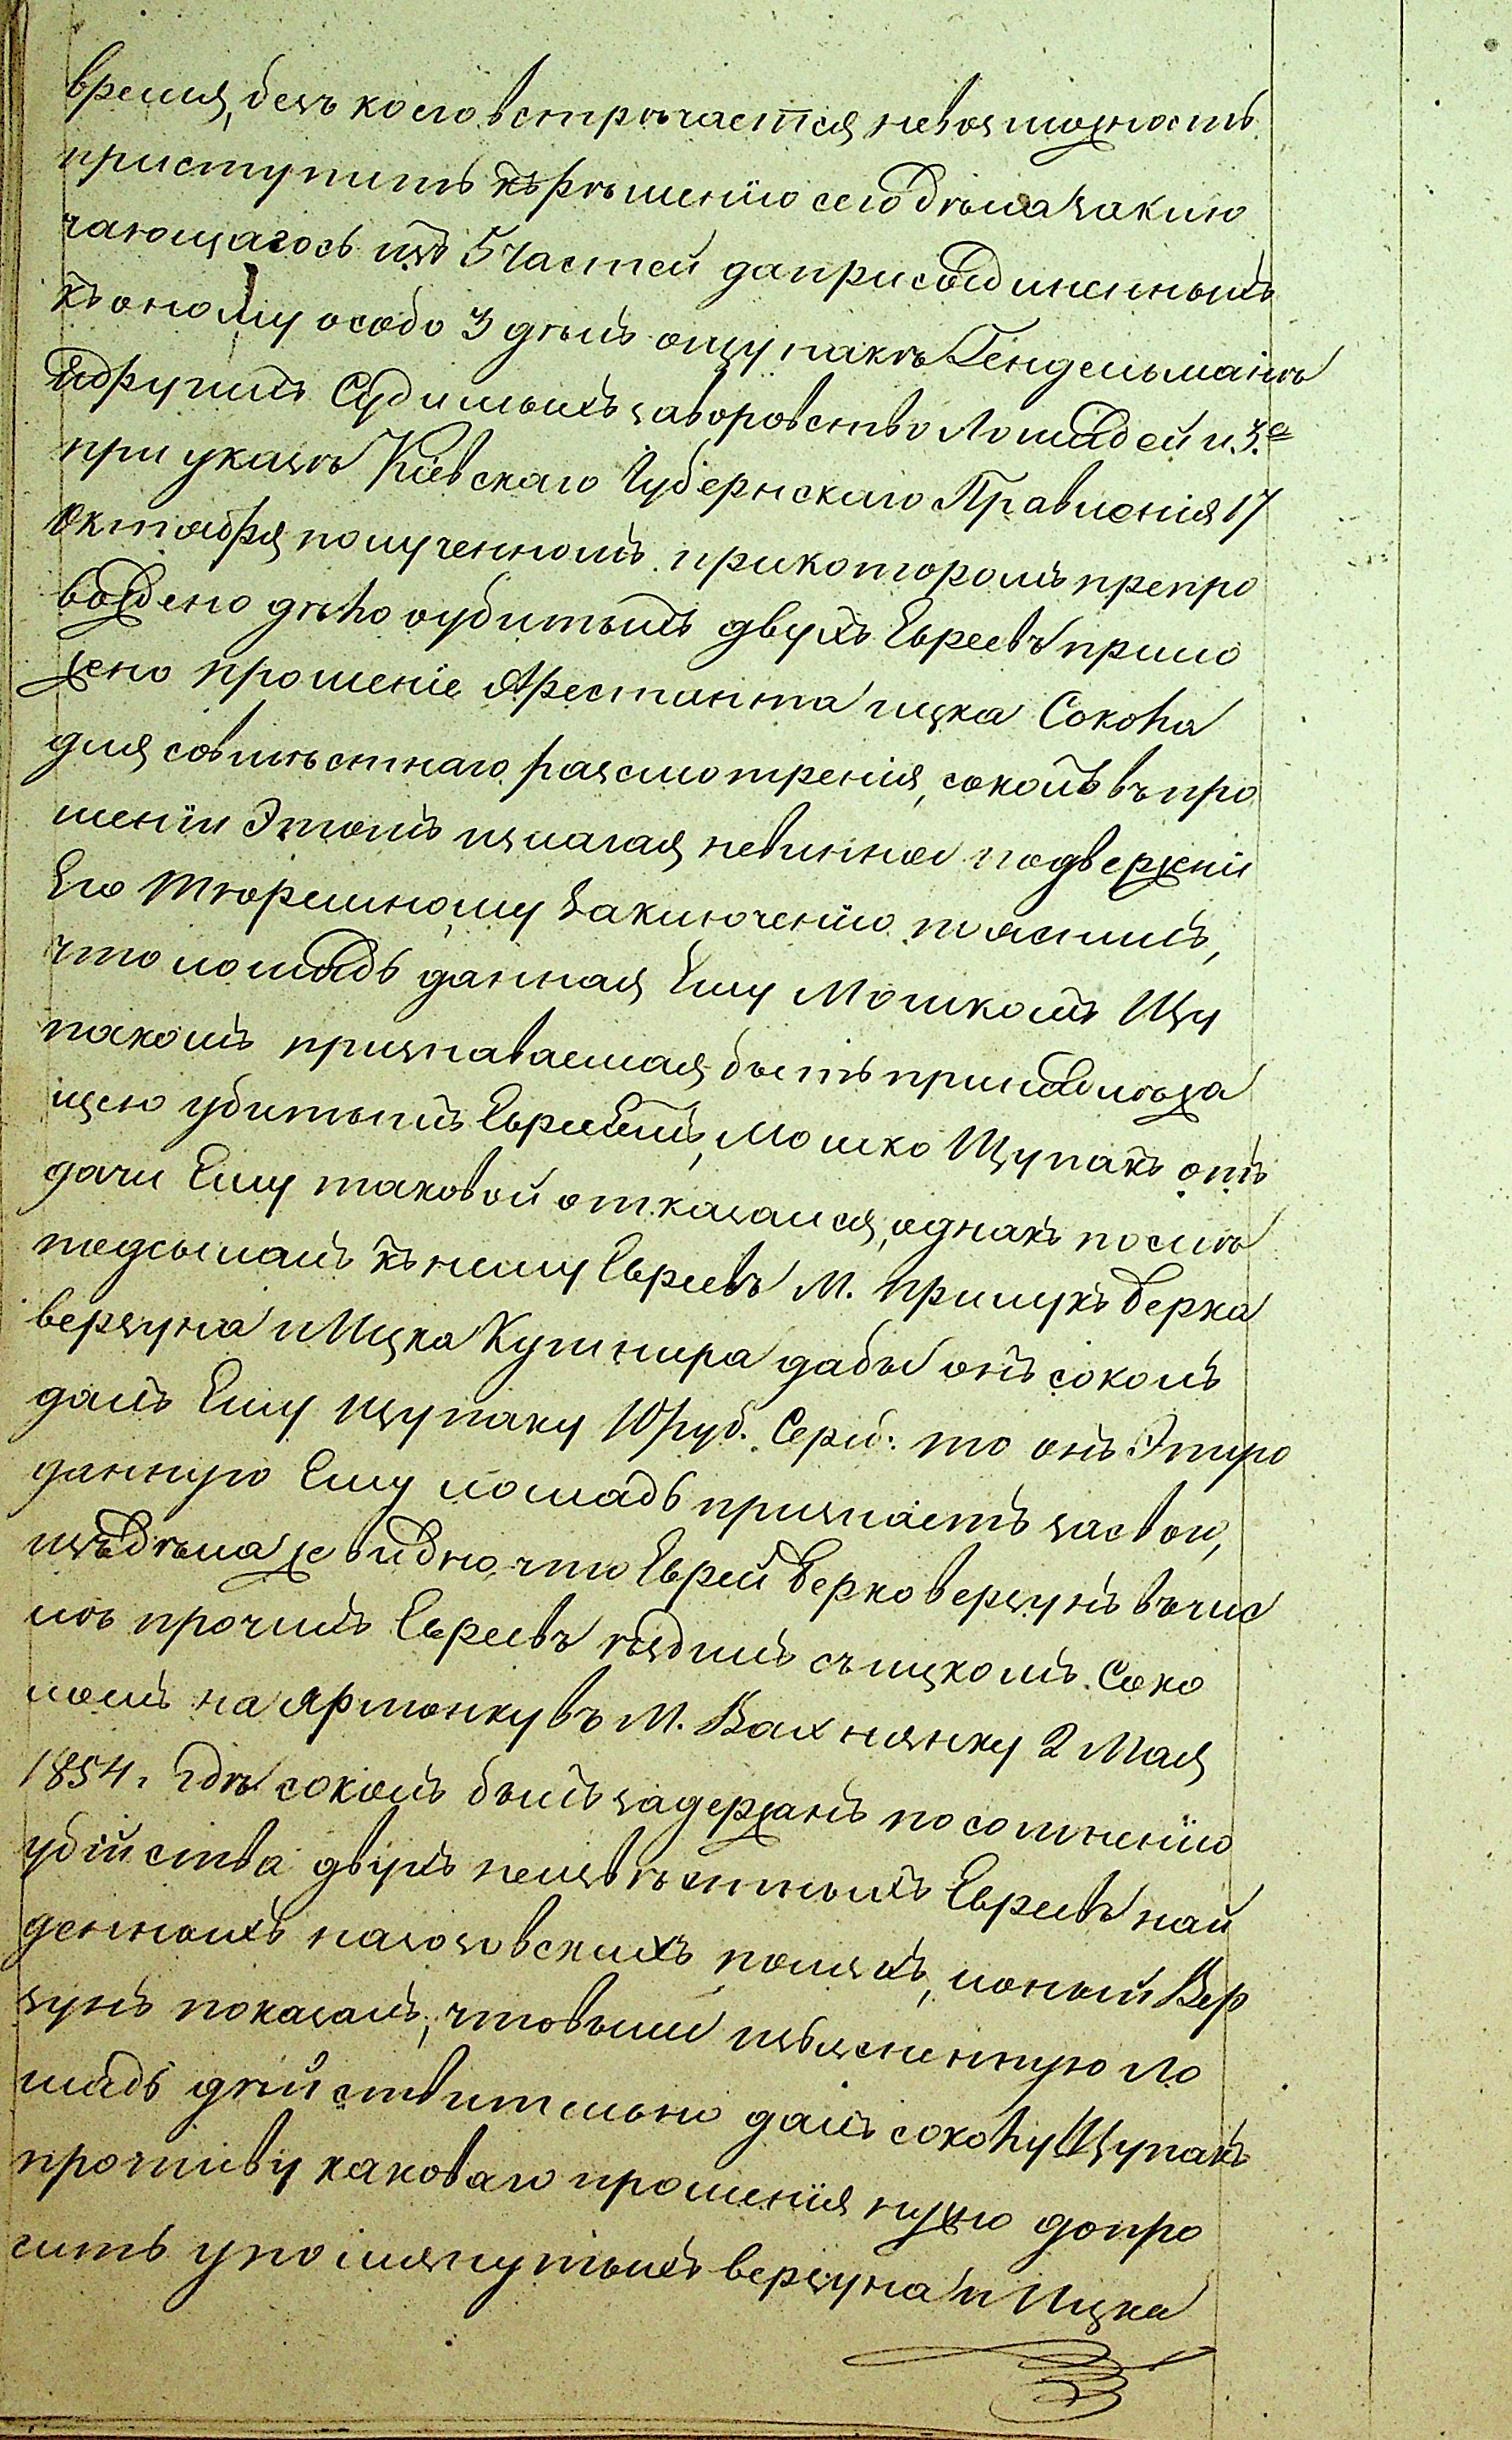 время, безъ коего встрѣчается невозможность
приступить къ рѣшенію сего дѣла заклю
чающагось изъ 5 частей да присоединенныхъ
къ оному особо 3 дѣлъ ощупакѣ Гендельманѣ
и другихъ Судимыхъ за воровство Лошадей и. 3.е
при указѣ Кіевскаго Губернскаго Правленія 17
Октября полученномъ. при которомъ препро
вождено дѣло о убитыхъ двухъ Евреевъ прило
жено прошеніе Арестанта ицка Сокола
для совмѣстнаго разсмотренія, соколъ въ про
шеніи Этомъ излагая невинное подвержніи
Его тюремному заключенію пояснилъ,
что лошадь данная Ему Мошкомъ Щу
пакомъ признаваемая быть принадлѣжа
щею убитымъ Евреямъ, Мошко Щупакъ отъ
дачи Ему таковой отказался, однакъ послѣ
подсылалъ къ нему Евреевъ М. Прилукъ Берка
верзуна и Ицка Кушнира дабы онъ соколъ
далъ Ему щупаку 10 руб. Сереб: то онъ Этую
данную Ему лошадь признаетъ засвою,
изъ дѣла же видно, что Еврей Берко верзунъ въ чис
лѣ прочихъ Евреевъ ѣздилъ съ ицкомъ Соко
ломъ на Ярмонку въ М. Вахнянку 2 Мая
1854. гдѣ соколъ былъ задержанъ по сомнению
убійства двухъ неизвѣстныхъ Евреевъ най
денныхъ на зозовскихъ поляхъ, и оный Вер
зунъ показалъ, что выше изъясненную ло
шадь дѣйствительно далъ соколу Щупакъ
противу каковаго прошенія нужно допро
сить упомянутыхъ верзуна и Ицка